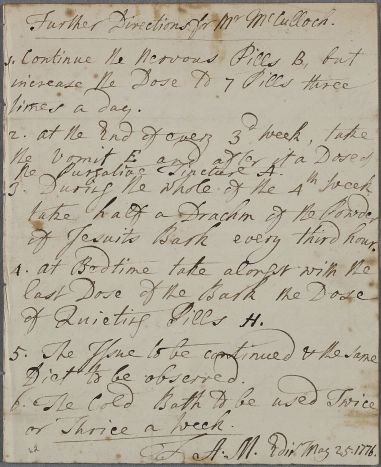 Further Directions for Mr McCulloch.
1. Continue the Nervous Pills B, but
increase the Dose to 7 Pills three
times a day.
2. at the End of every 3d Week, take
the Vomit E and after it a Dose of
the Purgative Tincture A.
3. During the whole of the 4th Week
take half a Drachm of the Powder
of Jesuits Bark every third hour.
4. at Bedtime take alongst with the
last Dose of the Bark the Dose
of Quieting Pills H.
5. The Issue to be continued & the same
Diet to be observed.
6. The Cold Bath to be used Twice
or Thrice a week.
A. M. Edinr May 25. 1776.